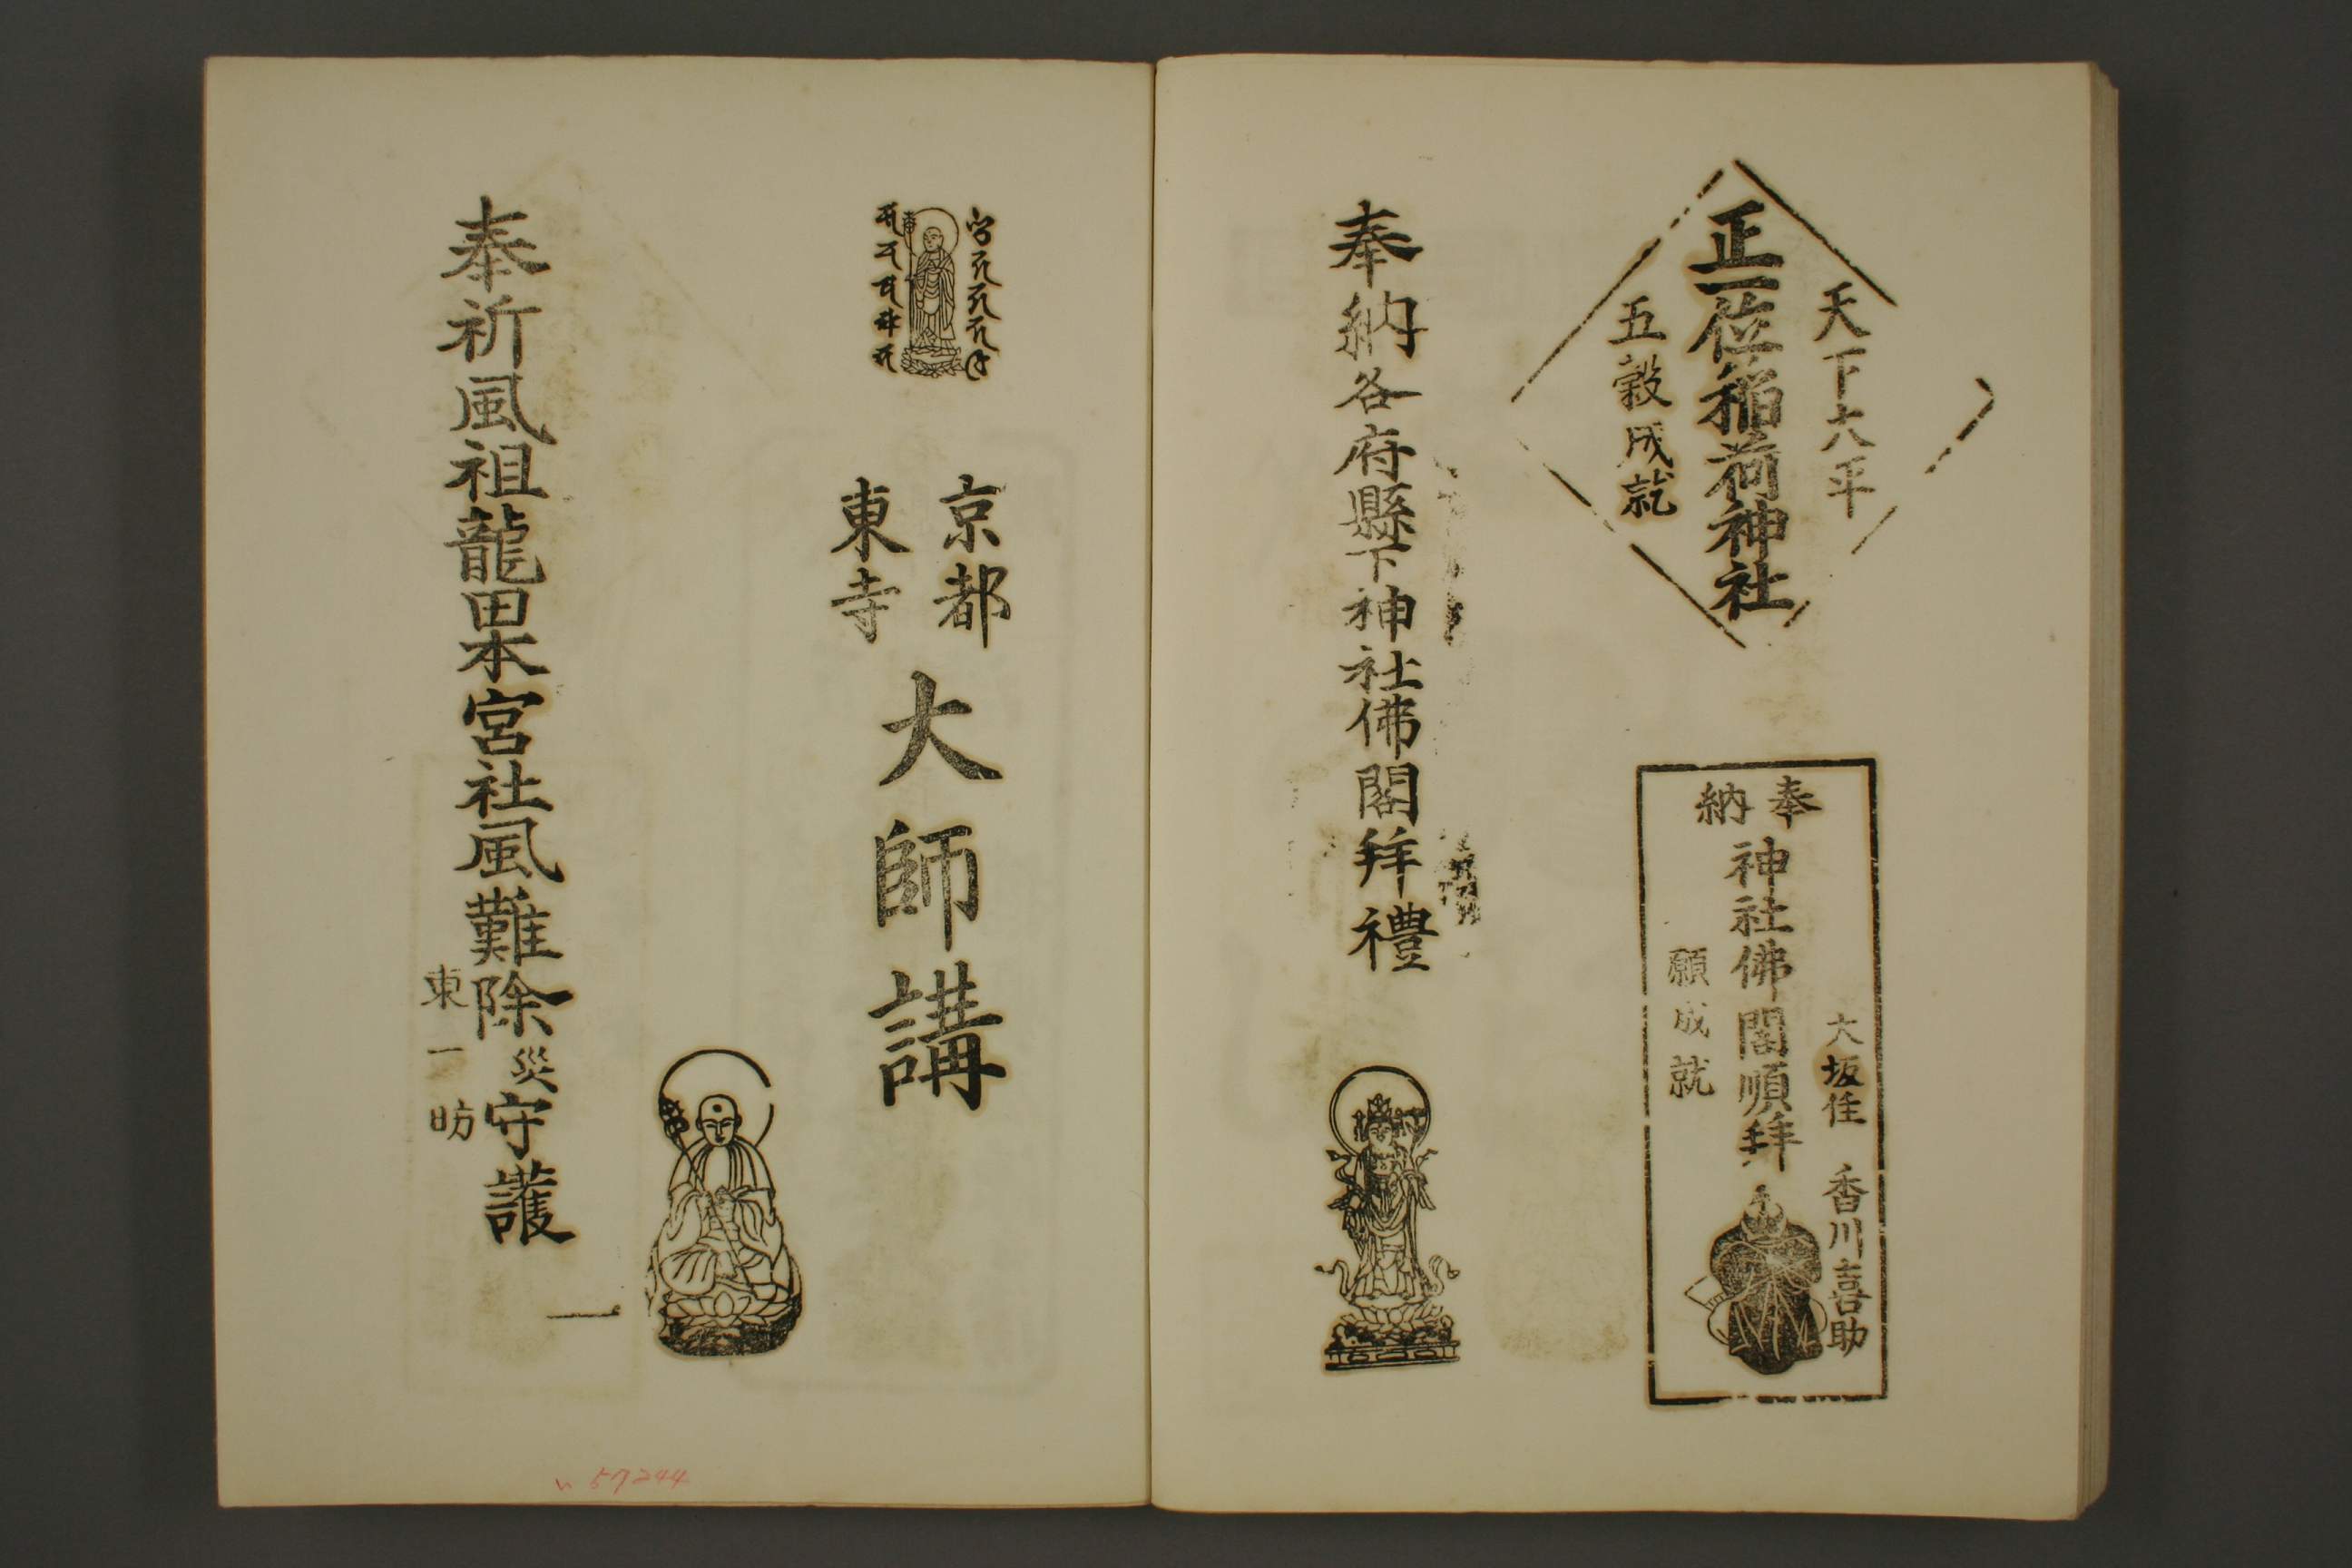 天下六平
正一位稲荷神社
五穀成就
奉納
神社佛閣順拜
大坂住 香川喜助
願成就
奉納各府縣下神社佛閣拜禮
京都
東寺
大師講
奉祈風祖龍田本宮社風難除災守護
東一昉
57244